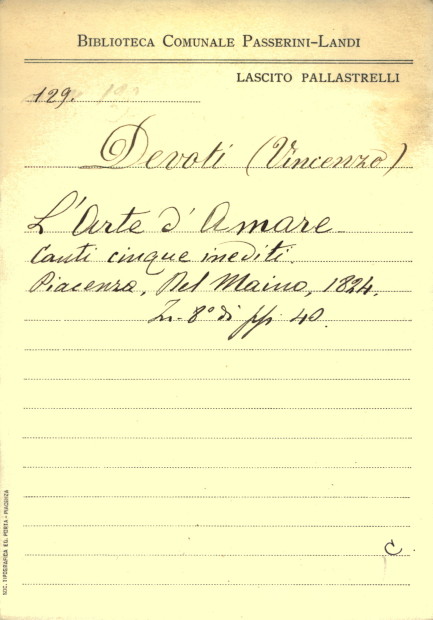 BIBLIOTECA COMUNALE PASSERINI-LANDI
LASCITO PALLASTRELLI
129.
Devoti (Vincenzo)
L'Arte d'Amare
Canti cinque inediti.
Piacenza, Del Maino, 1824.
In-8° di pp. 40.
C
SOC. TIPOGRAFICA ED. PORTA - PIACENZA